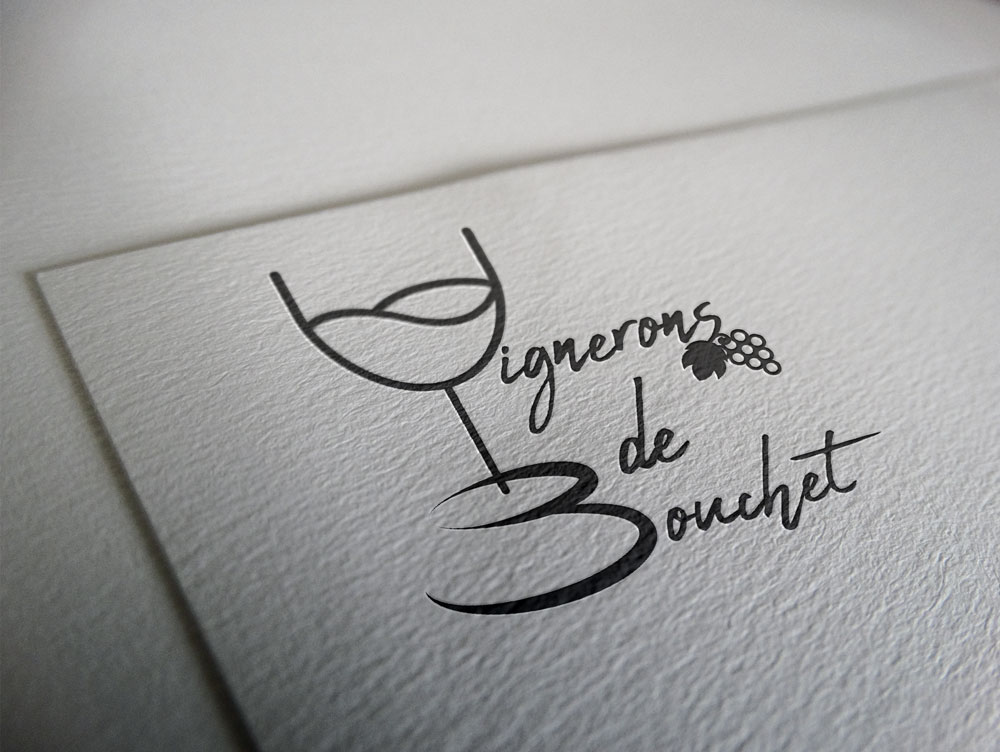 Vignerons
de
Bouchet